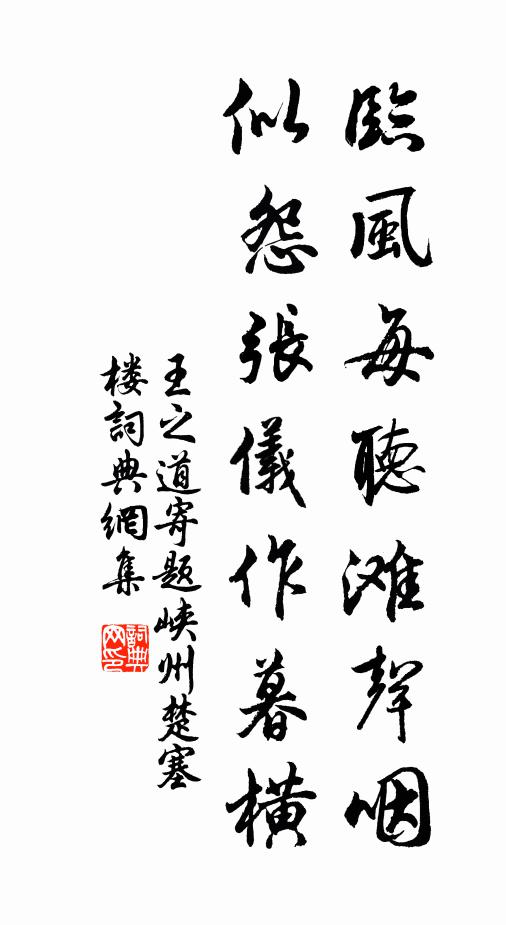 臨風每聽滩聲咽
似怨張儀作暮橫
王之道寄题峡州楚塞
楼詞典網集
詞典网印